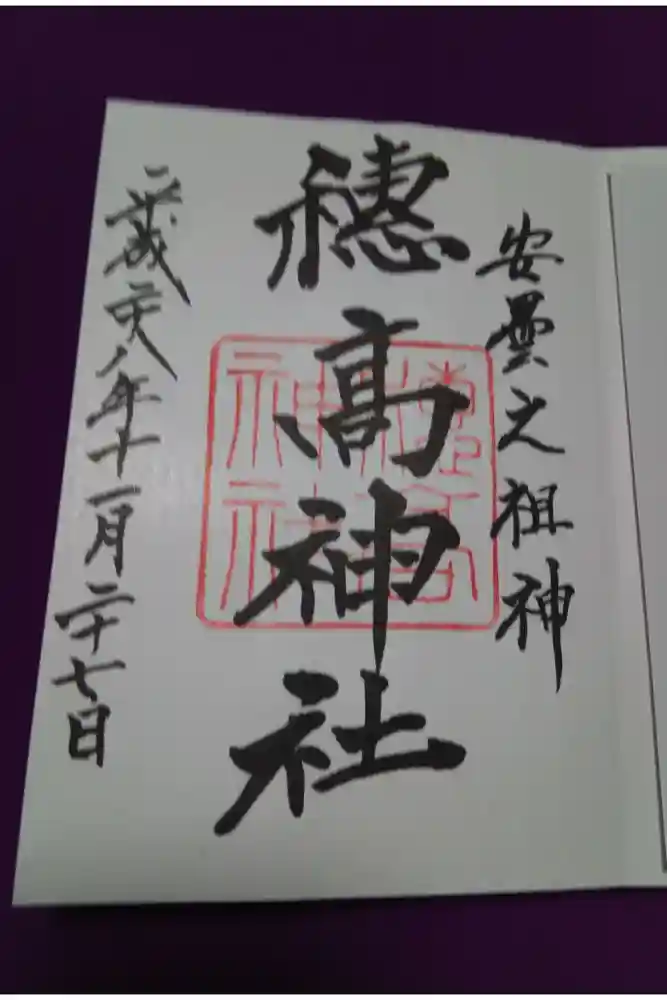 安曇之祖神
穂高神社
平成二十八年十一月二十七日